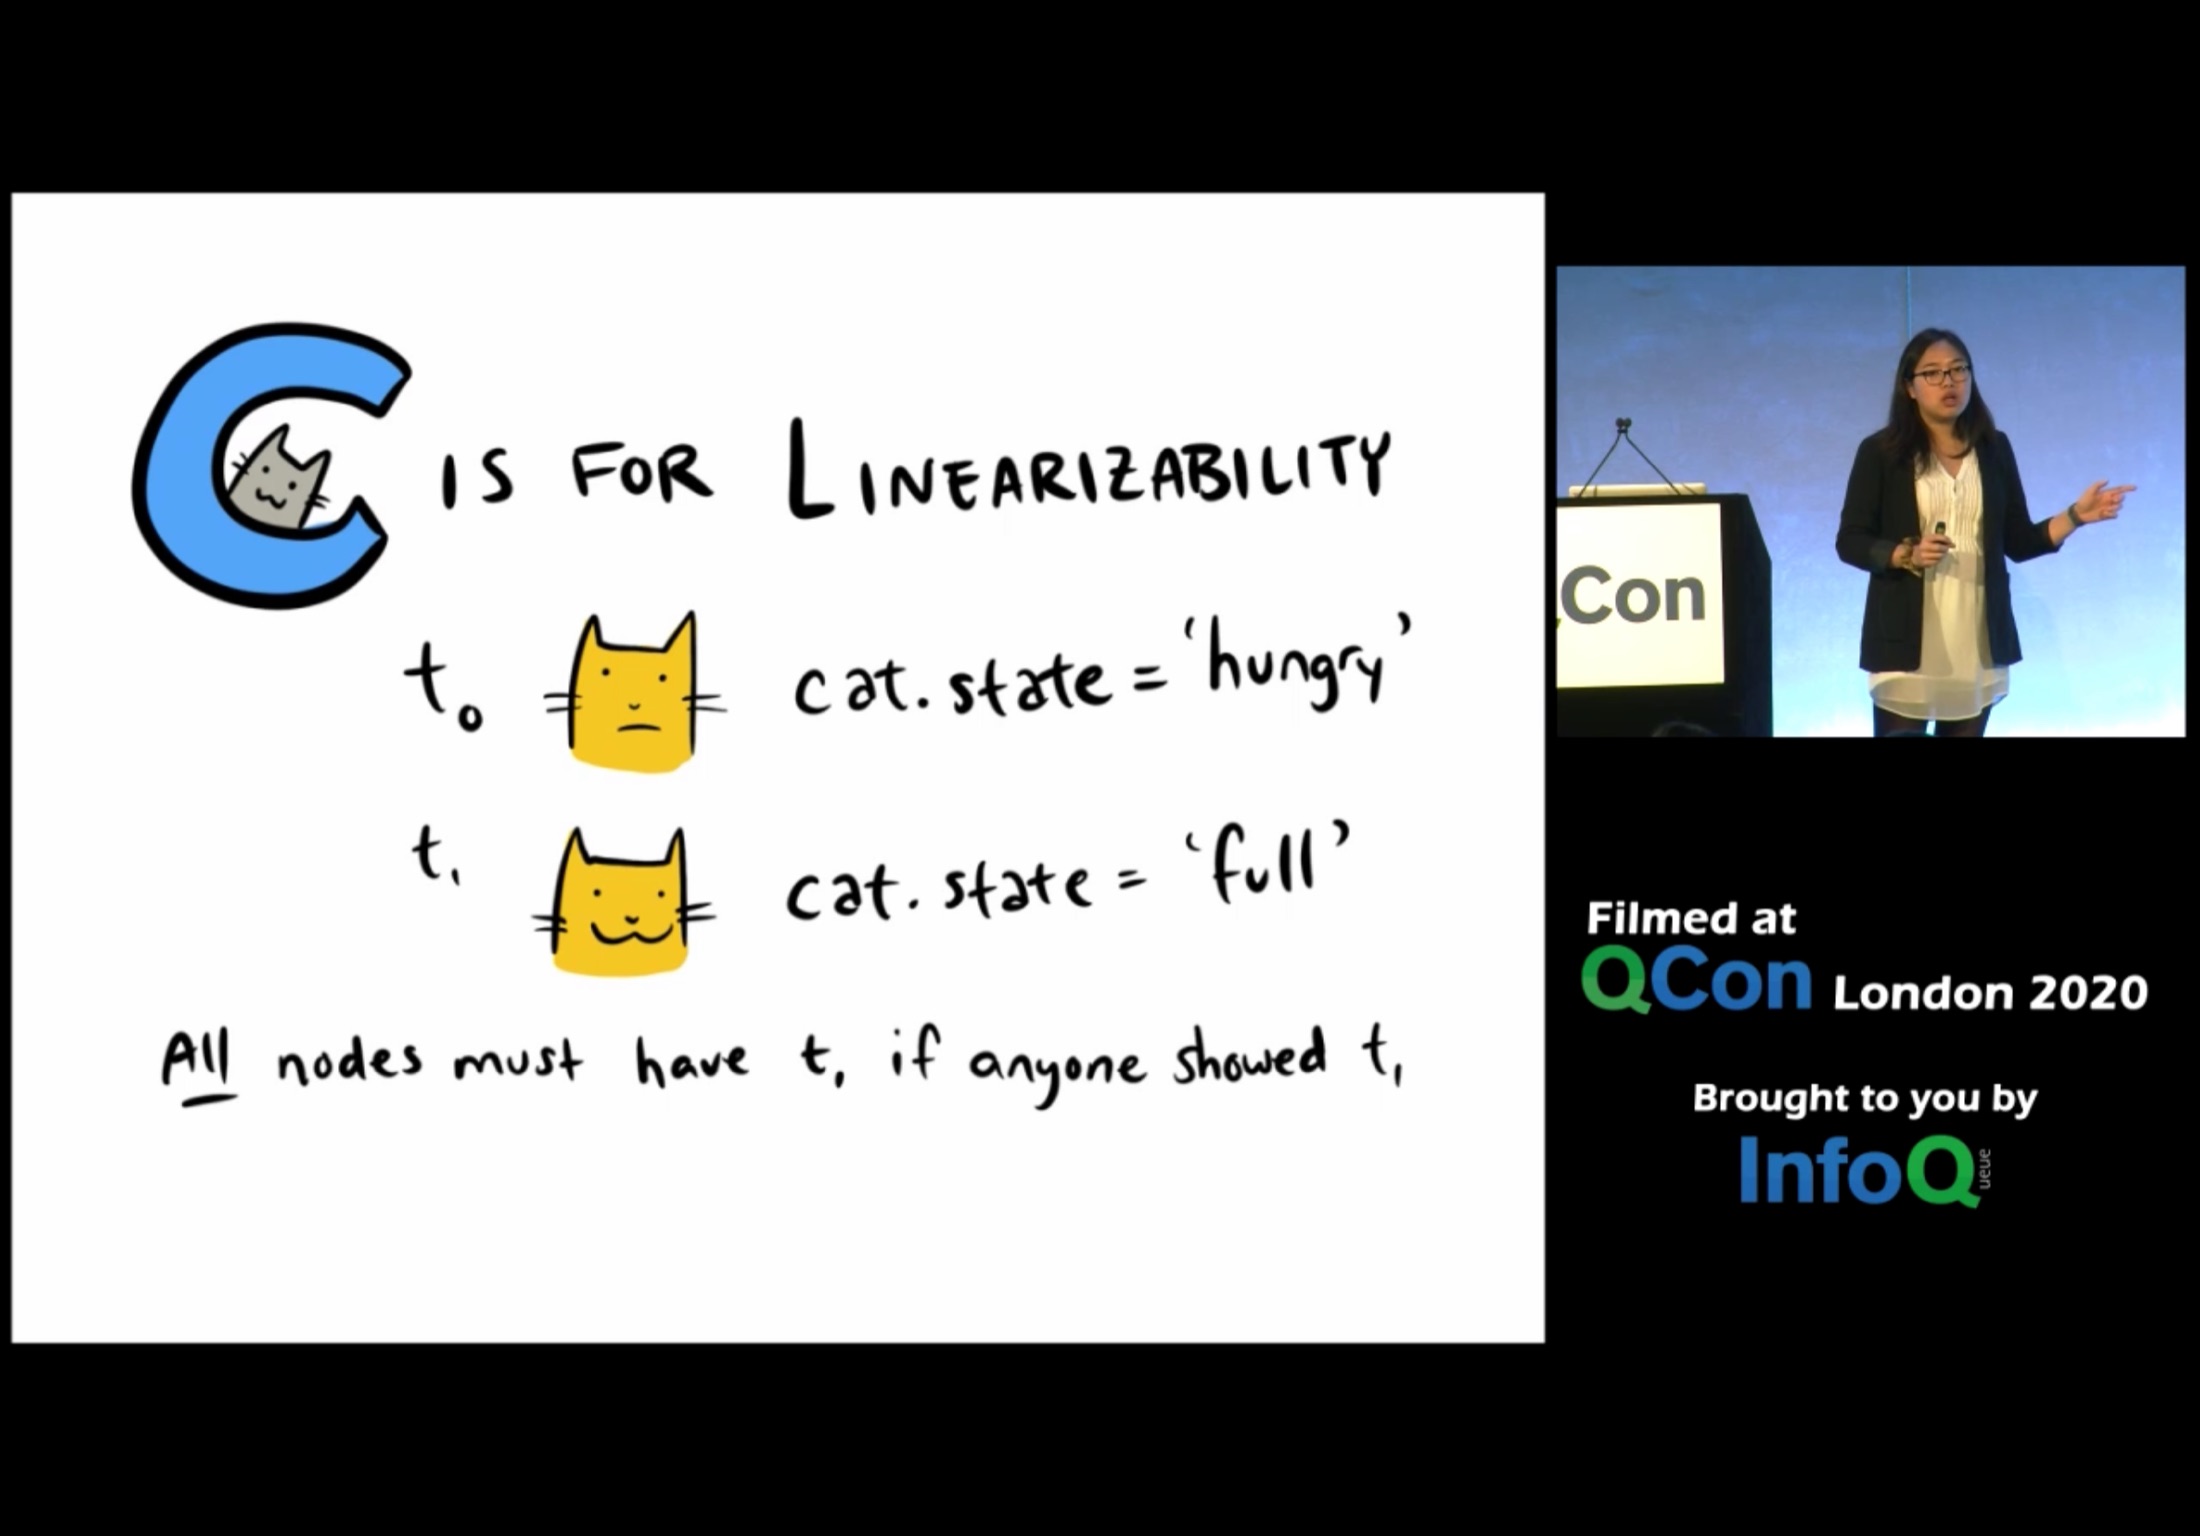 C IS FOR LINEARIZABILITY
t₀ cat.state = 'hungry'
t₁ cat.state = 'full'
All nodes must have t₁ if anyone showed t₁
Con
Filmed at
QCon London 2020
Brought to you by
InfoQ
ueue